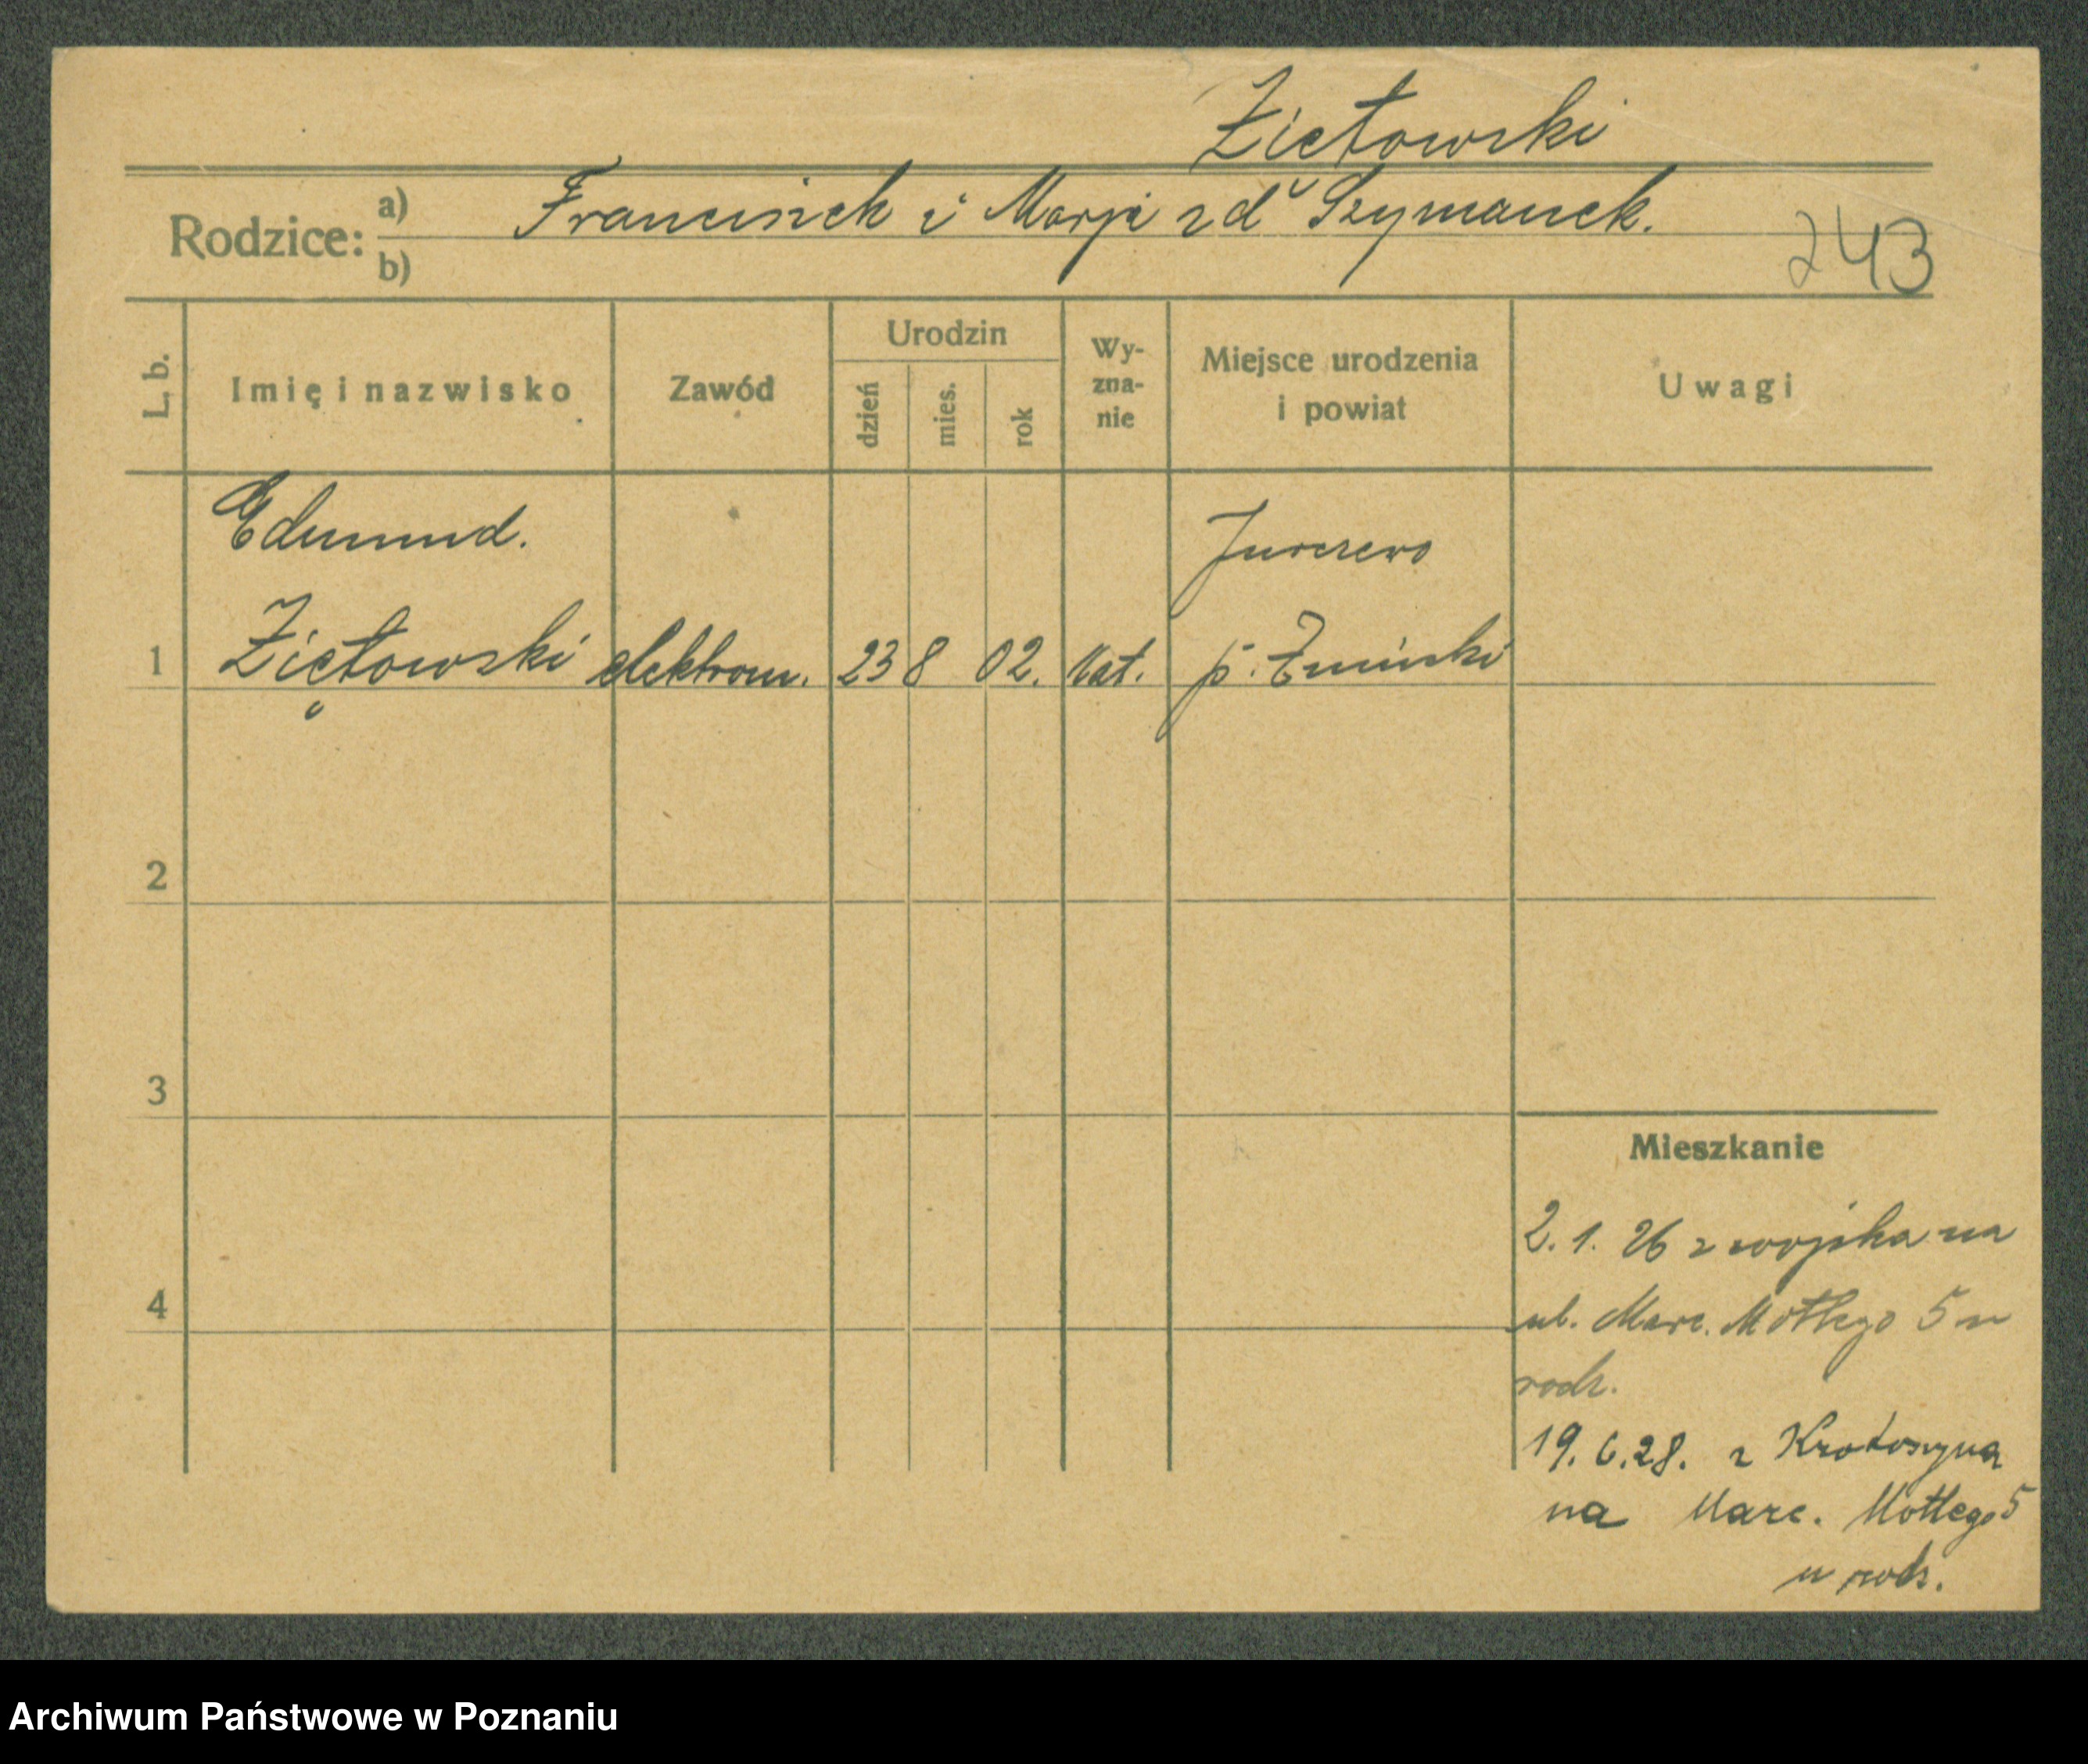 Zietowski
Rodzice: a) Franciszek i Marja z d. Szymanek.
b)
243
L. b.
Imię i nazwisko
Zawód
Urodzin
dzień
mies.
rok
Wy-
zna-
nie
Miejsce urodzenia
i powiat
Uwagi
Edmund.
Jurczewo
1 Ziętowski elektrom. 23 8 02. kat. p. Żniński
2
3
Mieszkanie
2. 1. 26 z wojska na
4
ul. Marc. Mottego 5 u
rodz.
19. 6. 28. z Krotoszyna
na Marc. Mottego 5
u rodz.
Archiwum Państwowe w Poznaniu